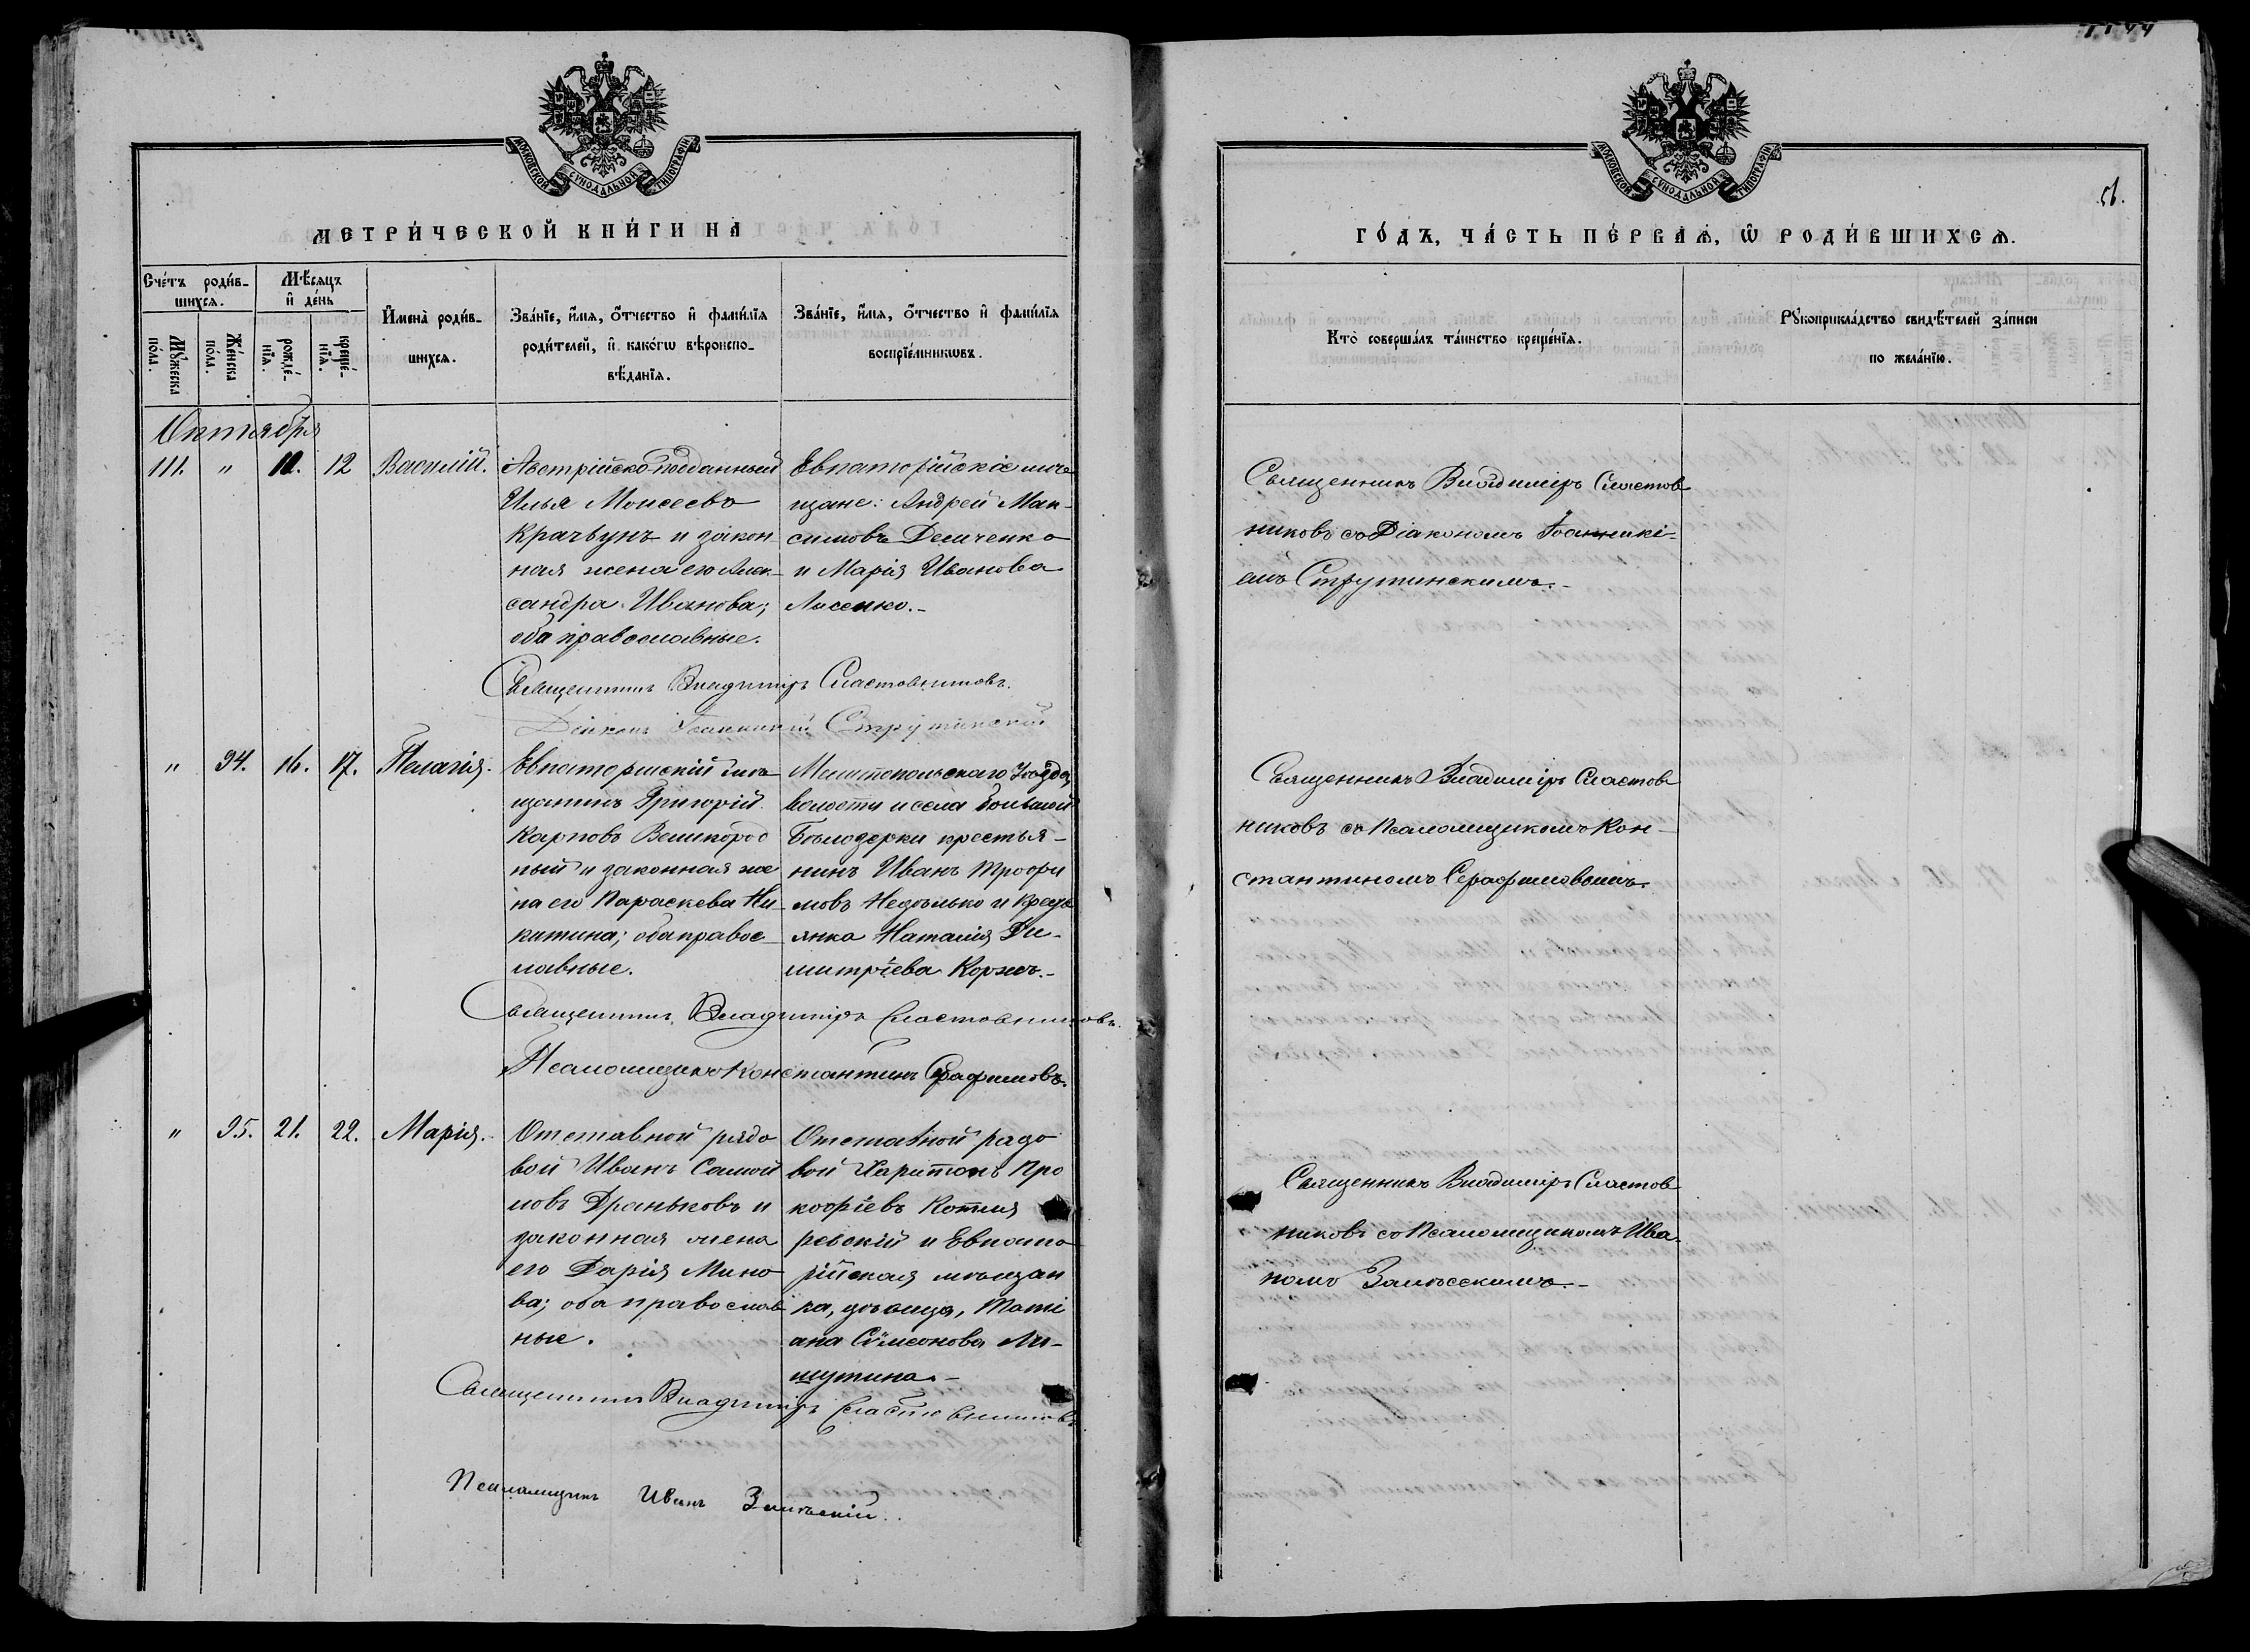 МОСКОВСКОЙ СУНОДАЛЬНОЙ ТИПОГРАФІИ
МЕТРИ́ЧЕСКОЙ КНИ́ГИ НА
Сче́тъ роди́в-
шихсѧ.
Мѣ́сѧцъ
и҆ де́нь
Мꙋ́жеска
по́ла.
Же́нска
по́ла.
рожде́-
нїѧ.
креще́-
нїѧ.
И҆мена̀ роди́в-
шихсѧ.
Зва́нїе, и҆́мѧ, ѻ҆́тчество и҆ фами́лїѧ
роди́телей, и҆ како́гѡ вѣроиспо-
вѣ́данїѧ.
Зва́нїе, и҆́мѧ, ѻ҆́тчество и҆ фами́лїѧ
воспрїе́мникѡвъ.
Октября
111. " 10. 12 Василій.
Австрійско-подданный
Илья Моисеевъ
Крачвунъ и закон
ная жена его Алек-
сандра Иванова;
оба православные.
Евпаторійскіе мѣ
щане: Андрей Мак-
симовъ Демченко
и Марія Иванова
Лисенко.-
Священникъ Владиміръ Сластовниковъ.
Діаконъ Іоанникій Струтинскій
" 94. 16. 17. Пелагія.
Евпаторійскій мѣ
щанинъ Григорій
Карповъ Великород
ный и законная же
на его Параскева Ни-
китина; оба правос-
лавные.
Мелитопольскаго уѣзда,
волости и села Большой
Бѣлозерки крестья-
нинъ Иванъ Трофи
мовъ Недѣлько и крест
янка Наталія Ди-
митріева Коржъ.-
Священникъ Владиміръ Сластовниковъ.
Псаломщикъ Константинъ Серафимовъ.
" 95. 21. 22. Марія.
Отставной рядо
вой Иванъ Самой
ловъ Драньковъ и
законная жена
его Дарія Мино
ва; оба православ
ные.
Отставной рядо
вой Харитонъ Про
кофіевъ Котля
ревскій и Евпато
рійская мѣщан
ка, дѣвица, Тати
ана Симеонова Ли-
шутина.-
Священникъ Владиміръ Сластовниковъ
Псаломщикъ Иванъ Залѣсскій.
МОСКОВСКОЙ СУНОДАЛЬНОЙ ТИПОГРАФІИ
ГО́ДЪ, ЧА́СТЬ ПЕ́РВАѦ, Ѡ҆ РОДИ́ВШИХСѦ.
Кто̀ соверша́лъ та́инство креще́нїѧ.
Рꙋкоприкла́дство свидѣ́телей за́писи
по жела́нїю.
Священникъ Владиміръ Сластов
никовъ со Діакономъ Іоанникі-
емъ Струтинскимъ.-
Священникъ Владиміръ Сластов
никовъ со Псаломщикомъ Кон-
стантиномъ Серафимовымъ.
Священникъ Владиміръ Сластов
никовъ со Псаломщикомъ Ива-
номъ Залѣсскимъ.-